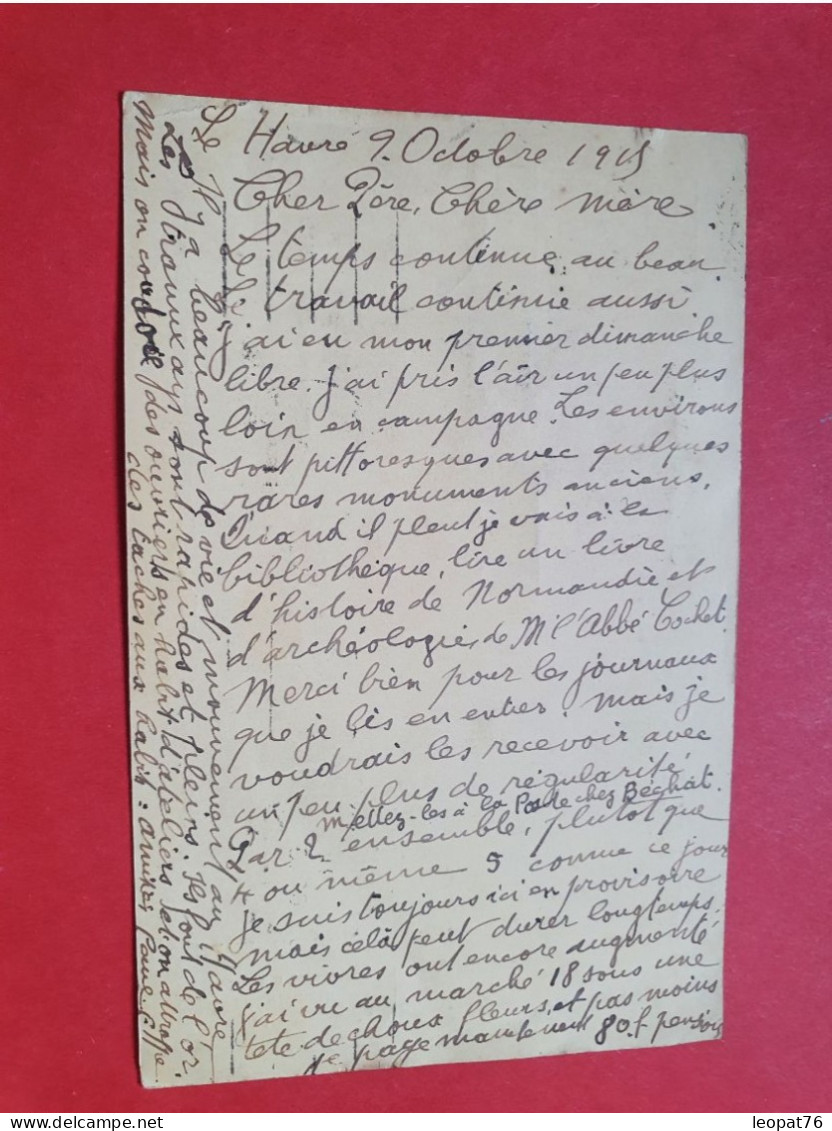 Le Havre 9. Octobre 1915
Cher Père, Chère mère
Le temps continue au beau.
Le travail continue aussi
j'ai eu mon premier dimanche
libre. j'ai pris l'air un peu plus
loin en campagne. Les environs
sont pittoresques avec quelques
rares monuments anciens.
Quand il pleut je vais à la
bibliothèque, lire un livre
d'histoire de Normandie et
d'archéologie, de M. l'Abbé Cochet.
Merci bien pour les journaux
que je lis en entier. mais je
voudrais les recevoir avec
un peu plus de régularité
mettez-les à la Poste chez Béghat.
Par 2 ensemble, plutot que
4 ou même 5 comme ce jour
je suis toujours ici en provisoire
mais cela peut durer longtemps.
Les vivres ont encore augmenté
j'ai vu au marché 18 sous une
tete de choux fleurs, et pas moins
Je paye maintenant 80.f pension
Il y a beaucoup de vie et mouvement au Havre
Les travaux sont rapides et pleins.
font de l'or.
Mais on coudoie des ouvriers en habit d'ateliers et on attrappe
des taches aux habits.
leopat76